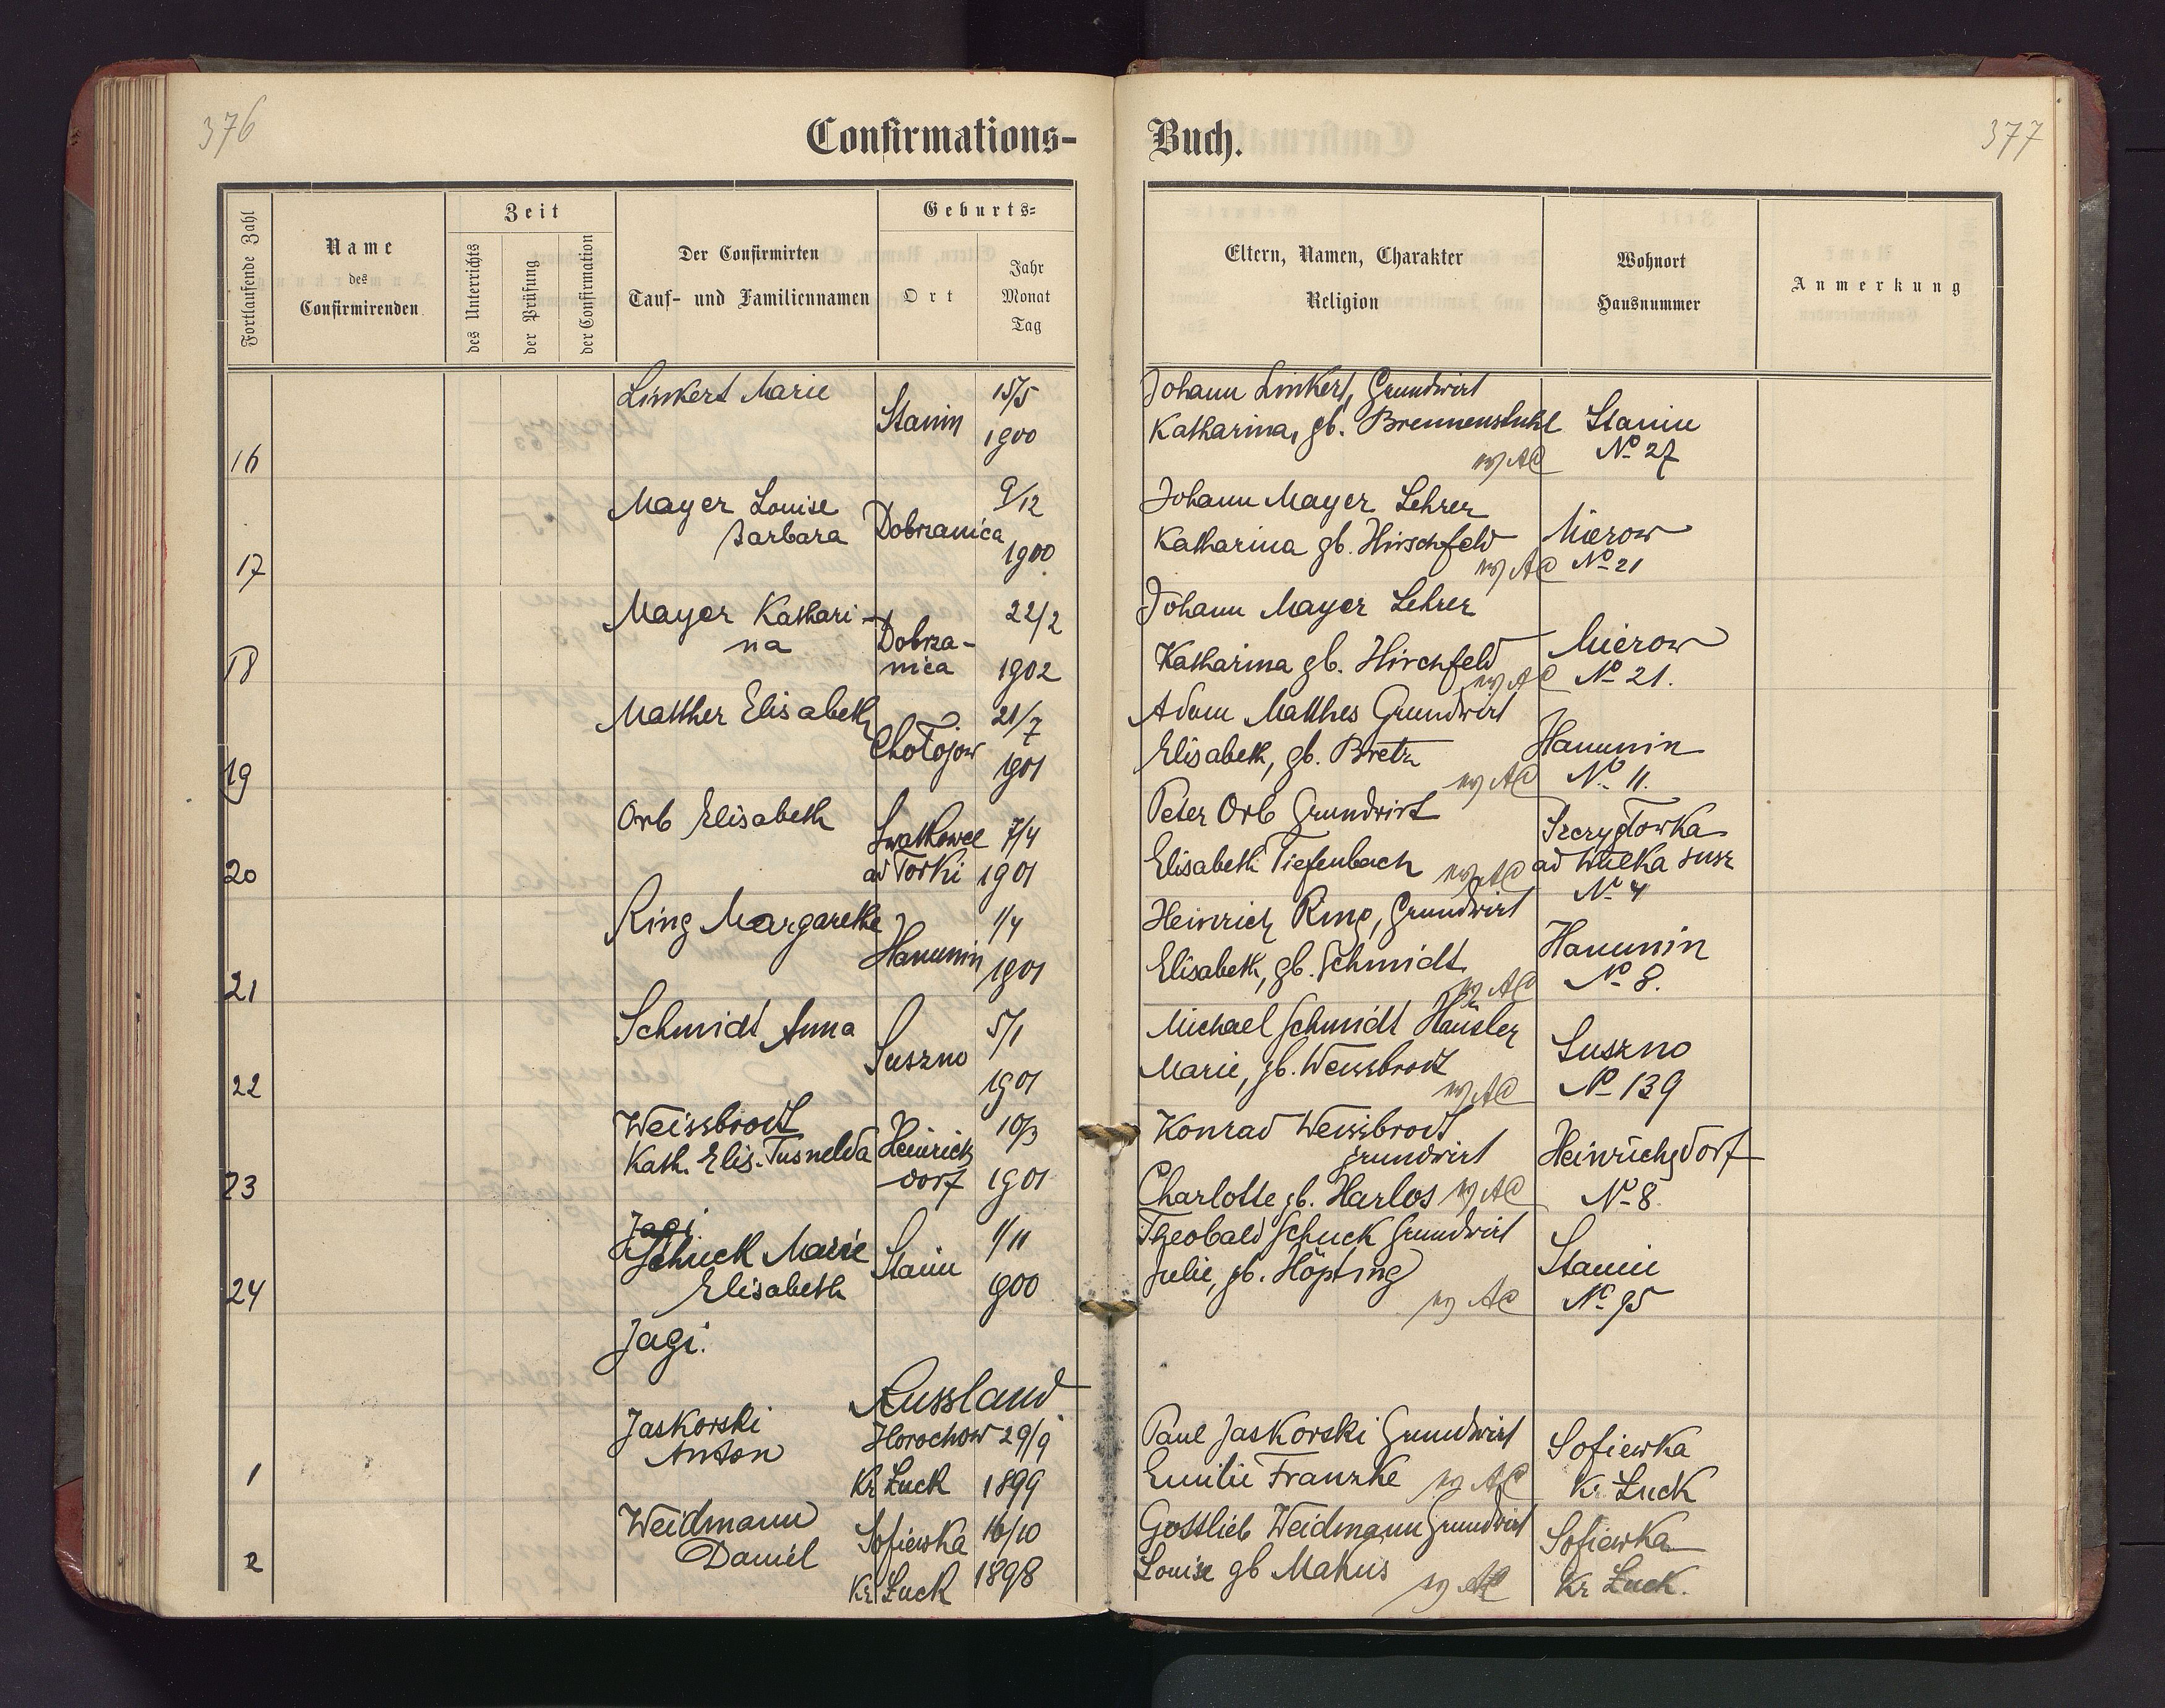 376
Confirmations-
Buch.
377
Fortlaufende Zahl
Name
des
Confirmirenden
Zeit
des Unterrichts
der Prüfung
der Confirmation
Der Confirmirten
Tauf- und Familiennamen
Geburts-
Ort
Jahr
Monat
Tag
Eltern, Namen, Charakter
Religion
Wohnort
Hausnummer
Anmerkung
16
Linkert Marie
Stanin
15/5
1900
Johann Linkert, Grundwirt
Katharina, gb. Brennenstuhl
AC
Stanin
No 27
17
Mayer Louise
Barbara
Dobrzanica
9/12
1900
Johann Mayer Lehrer
Katharina gb. Hirschfeld
AC
Mierow
No 21
18
Mayer Kathari-
na
Dobrza-
nica
22/2
1902
Johann Mayer Lehrer
Katharina gb. Hirchfeld
AC
Mierow
No 21.
19
Matthes Elisabeth
Chołojow
21/7
1901
Adam Matthes Grundwirt
Elisabeth, gb. Bretz
AC
Hanunin
No 11.
20
Orb Elisabeth
ad Torki
7/4
1901
Peter Orb Grundwirt
Elisabeth Tiefenbach
AC
ad Wulka susz
No 4
21
Ring Margarethe
Hanunin
1/4
1901
Heinrich Ring, Grundwirt
Elisabeth, gb. Schmidt
AC
Hanunin
No 8.
22
Schmidt Anna
Suszno
5/1
1901
Michael Schmidt Häusler
Marie, gb. Weissbrodt
AC
Suszno
No 139
23
Weissbrodt
Kath. Elis. Tusnelda
Heinrich
dorf
10/3
1901
Konrad Weissbrodt
Grundwirt
Charlotte gb. Harlos AC
Heinrichsdorf
No 8.
24
Jagi
Schuck Marie
Elisabeth
Stanin
1/11
1900
Theobald Schuck Grundwirt
Julie, gb. Höpfing
AC
Stanin
No 95
Jagi.
Russland
1
Jaskorski
Anton
Horochow
Kr Łuck
29/9
1899
Paul Jaskorski Grundwirt
Emilie Franzke AC
Sofiewka
Kr. Łuck
2
Weidmann
Daniel
Sofiewka
Kr Łuck
16/10
1898
Gottlieb Weidmann Grundwirt
Louise gb Mahus AC
Sofiewka
Kr Łuck.